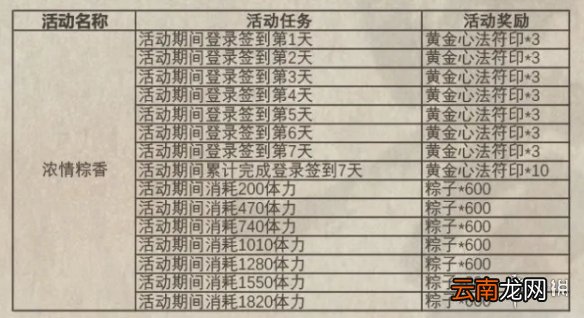 活动名称 活动任务 活动奖励
活动期间登录签到第1天 黄金心法符印*3
活动期间登录签到第2天 黄金心法符印*3
活动期间登录签到第3天 黄金心法符印*3
活动期间登录签到第4天 黄金心法符印*3
活动期间登录签到第5天 黄金心法符印*3
活动期间登录签到第6天 黄金心法符印*3
活动期间登录签到第7天 黄金心法符印*3
浓情粽香 活动期间累计完成登录签到7天 黄金心法符印*10
活动期间消耗200体力 粽子*600
活动期间消耗470体力 粽子*600
活动期间消耗740体力 粽子*600
活动期间消耗1010体力 粽子*600
活动期间消耗1280体力 粽子*600
活动期间消耗1550体力 粽子*600
活动期间消耗1820体力 粽子*600
云南龙网